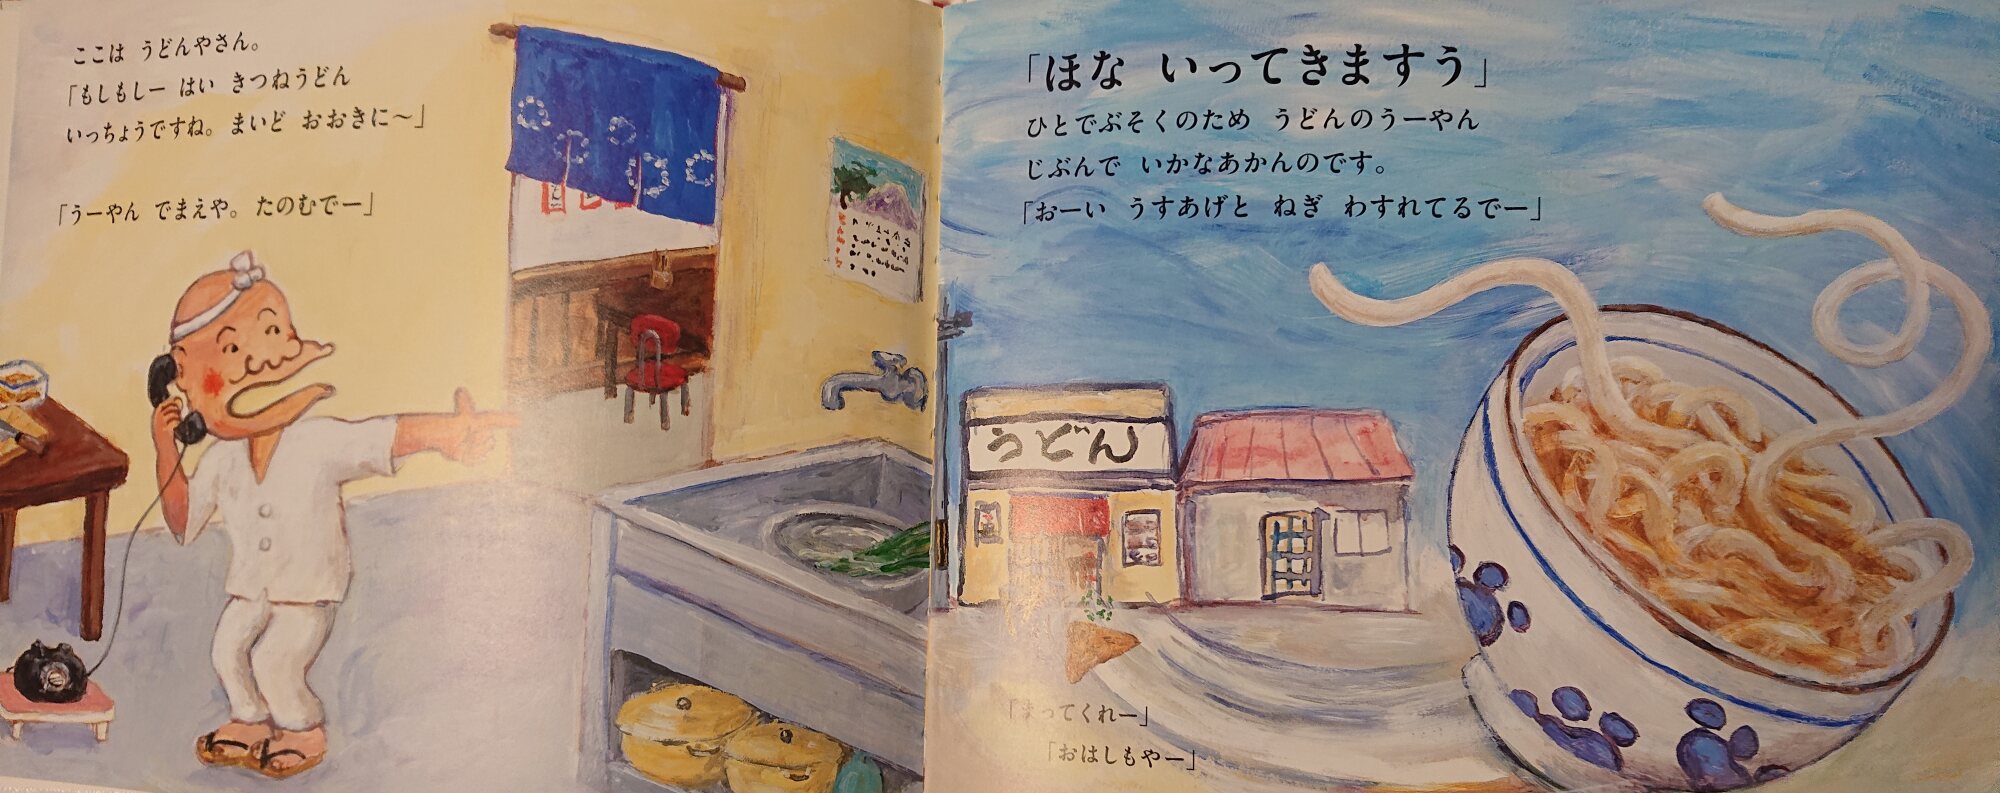 ここは うどんやさん。
「もしもしー はい きつねうどん
いっちょうですね。まいど おおきに〜」
「うーやん でまえや。たのむでー」
「ほな いってきますう」
ひとでぶそくのため うどんのうーやん
じぶんで いかなあかんのです。
「おーい うすあげと ねぎ わすれてるでー」
うどん
「まってくれー」
「おはしもやー」